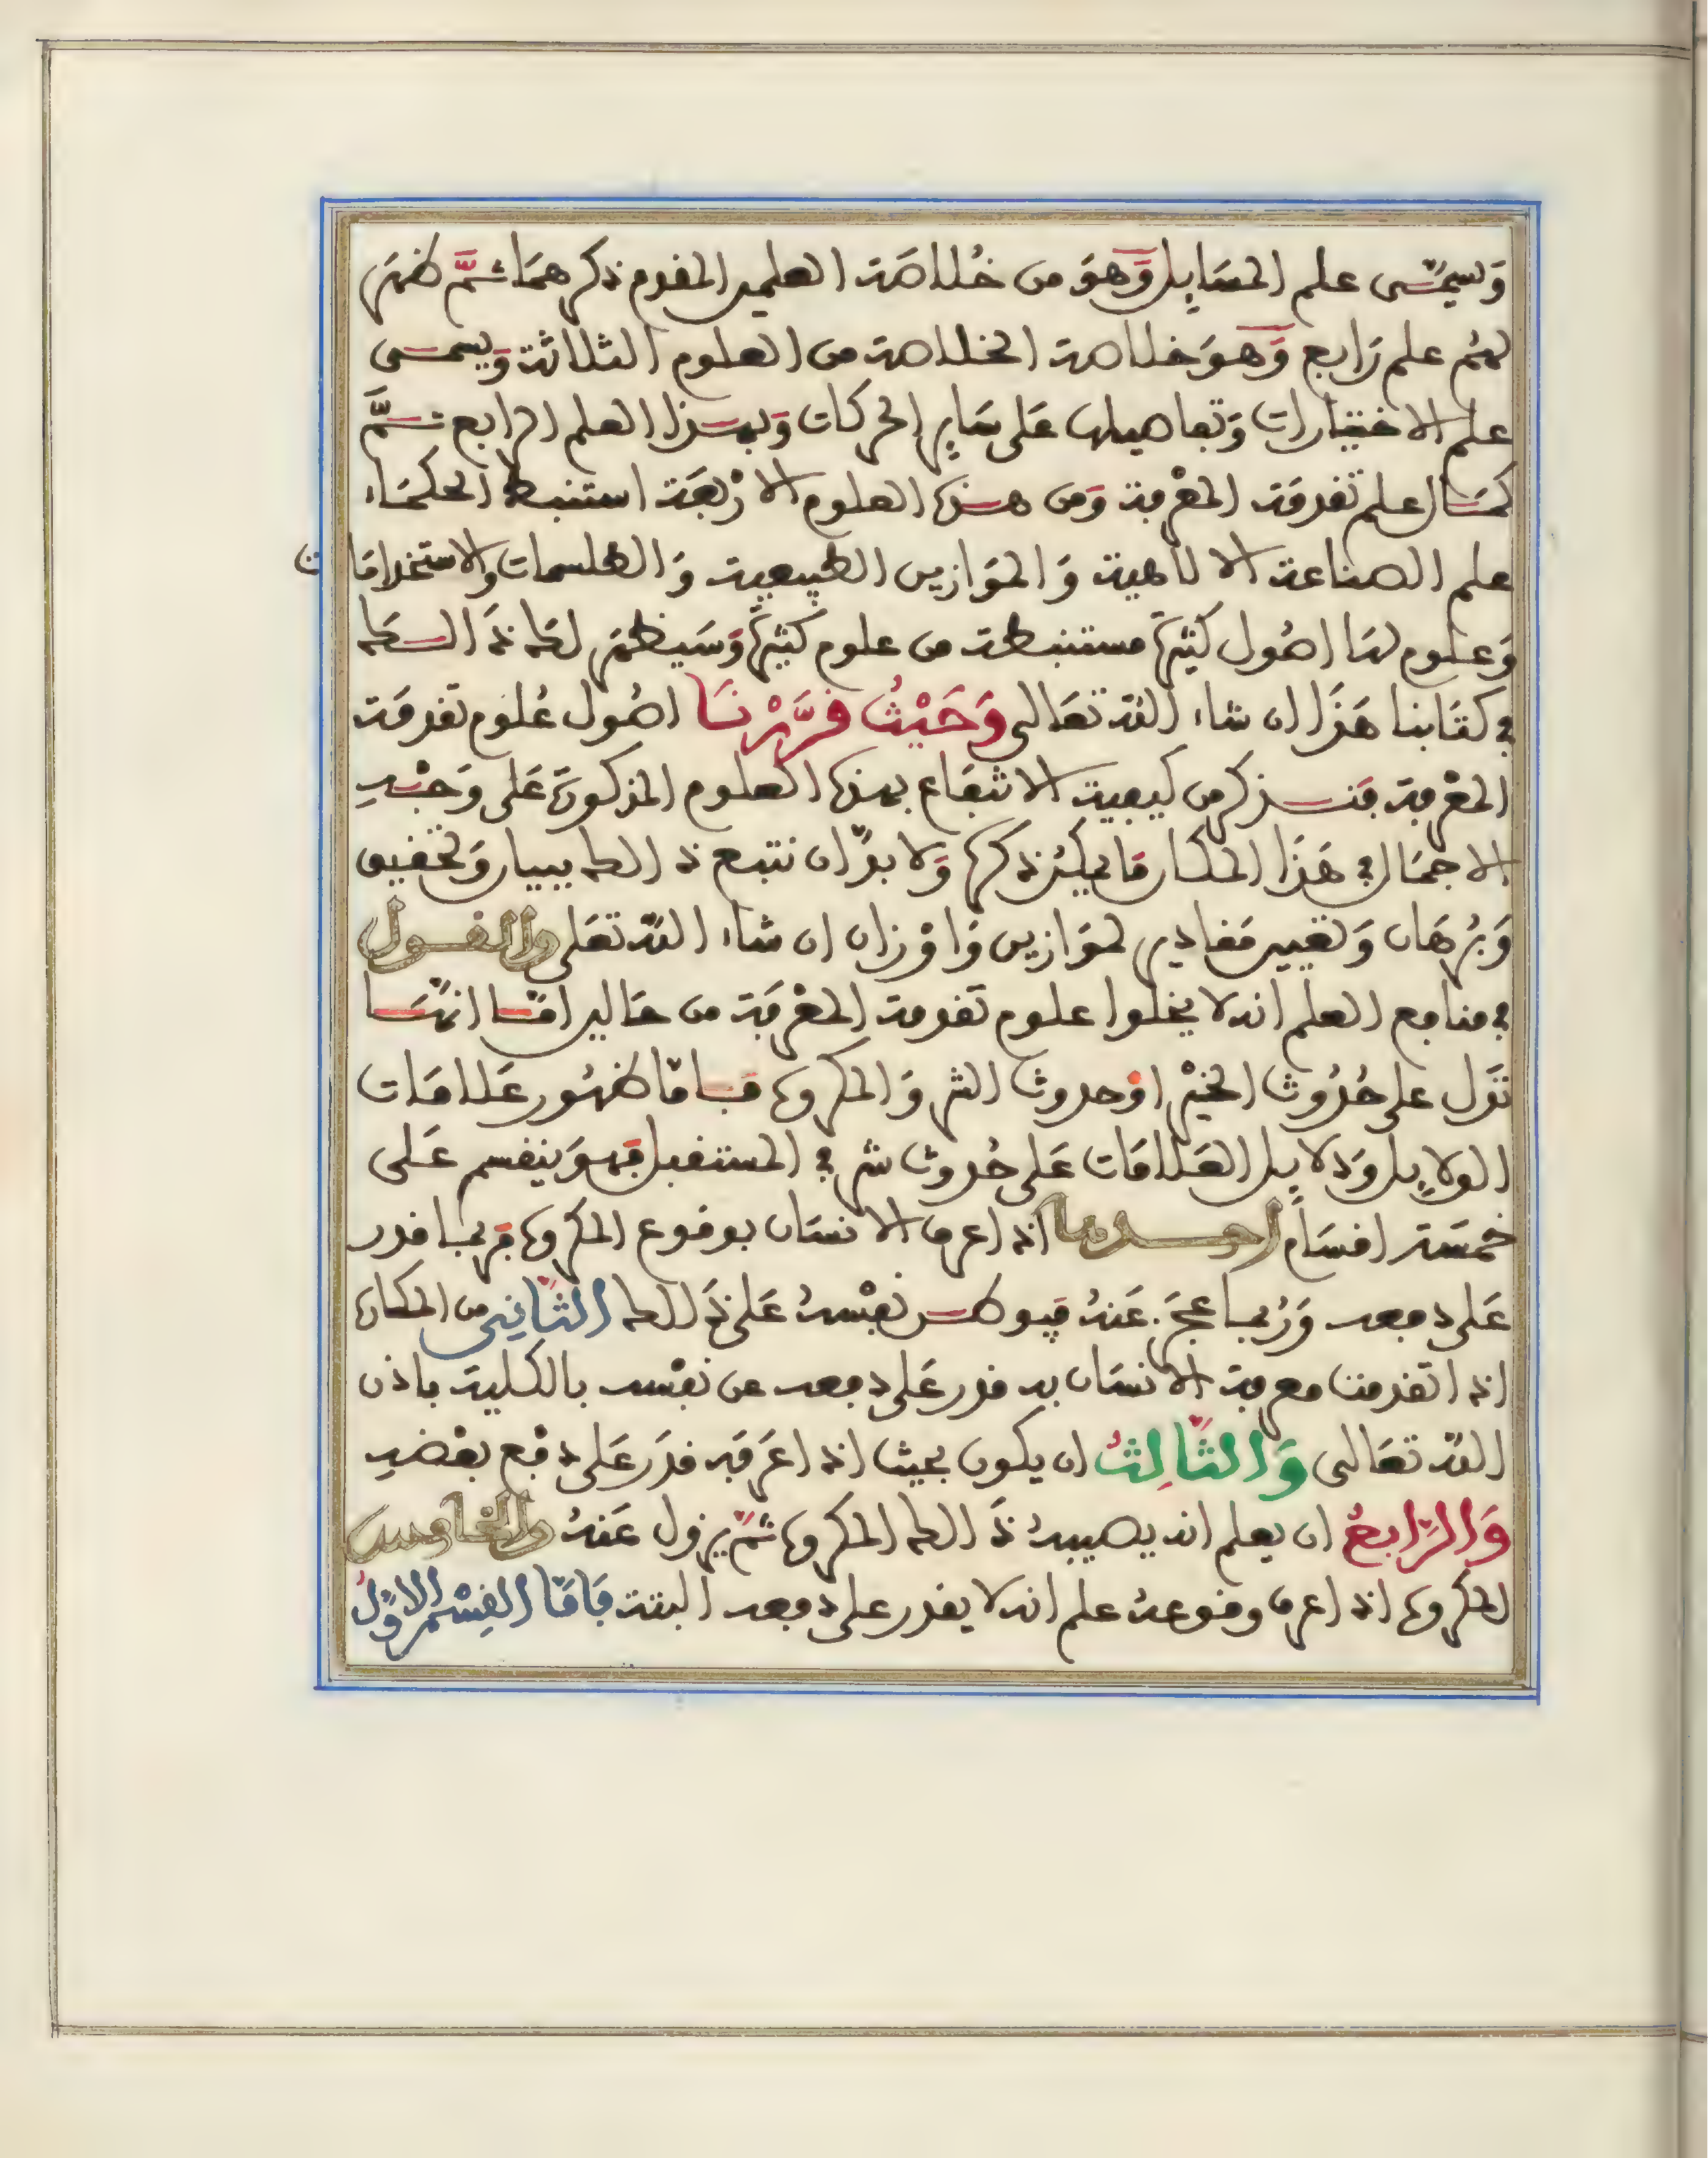 وَيسمَّى علم المسَايِل وَهوَ من خُلاصَة العلمين المقدم ذكرهمَا ثمَّ ظهَر
لهُم علم رَابع وَهوَ خلاصة الخلاصة من العلوم الثلاثة وَيسمى
علم الاختيارات وَتفاصيلها عَلى سَايِر الحركات وَبهذا العلم الرابع تمَّ
كمَال علم تقدمَة المعْرفة وَمن هذه العلوم الارْبعَة استنبط الحكمَاء
علم الصناعة الالاهية وَالموَازين الطبيعية وَالطلسمات والاستخدامَات
وَعلوم لهَا اصُول كثيرَة مستنبطة من علوم كثيرَة وَسَيظهَر لكَ ذَالك
في كتَابنا هَذَا ان شاء الله تعَالى وَحَيْثُ قرَّرْنَا اصُول عُلوم تقدمَة
المعْرفة فَنذكر من كيفية الانتفَاع بهذه العلوم المذكورَة عَلى وَجْهِ
الاجمَال في هَذَا المكان مَا يمكنُ ذكره وَلا بدَّ ان نتبع ذالك ببيان وَتحقيق
وَبُرهَان وَتعيين مَقادير لموَازين وَاوْزان ان شاء الله تعَلى والقول
في منافع العلم انه لا يخلوا علوم تقدمة المعْرفَة من حَالين امَّا انهَا
تدَل على حُدُوث الخيْر اوْ حدوث الشر وَالمكروه فَامَّا ظهُور عَلامَات
الدلايِل وَدلايل العَلامَات عَلى حُدوث شر في المستقبل فَهوَ ينقسم عَلى
خمسَة اقسَام احدها اذا عرف الانسَان بوقوع المكروه فَربما قدر
عَلى دفعه وَرُبما عجَز عَنهُ فيوطن نفْسهُ عَلى ذَالك الثَّاني من المكاره
اذا تقدمت معرفة الانسَان به قدر عَلى دفعه عن نفْسه بالكلية باذن
الله تعَالى وَالثَّالِثُ ان يكون بحيث اذا عَرَفَه قدَر عَلى دفْع بعْضهِ
وَالرَّابعُ ان يعلم انه يصيبهُ ذَالك المكروه ثمَّ يزول عَنهُ والخامس
المكروه اذا عرف وقوعهُ علم انه لا يقدر على دفعه البتة فَامَّا القِسْم الاوَّلُ